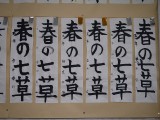 春の七草
春の七草
春の七草
春の七草
春の七草
春の七草